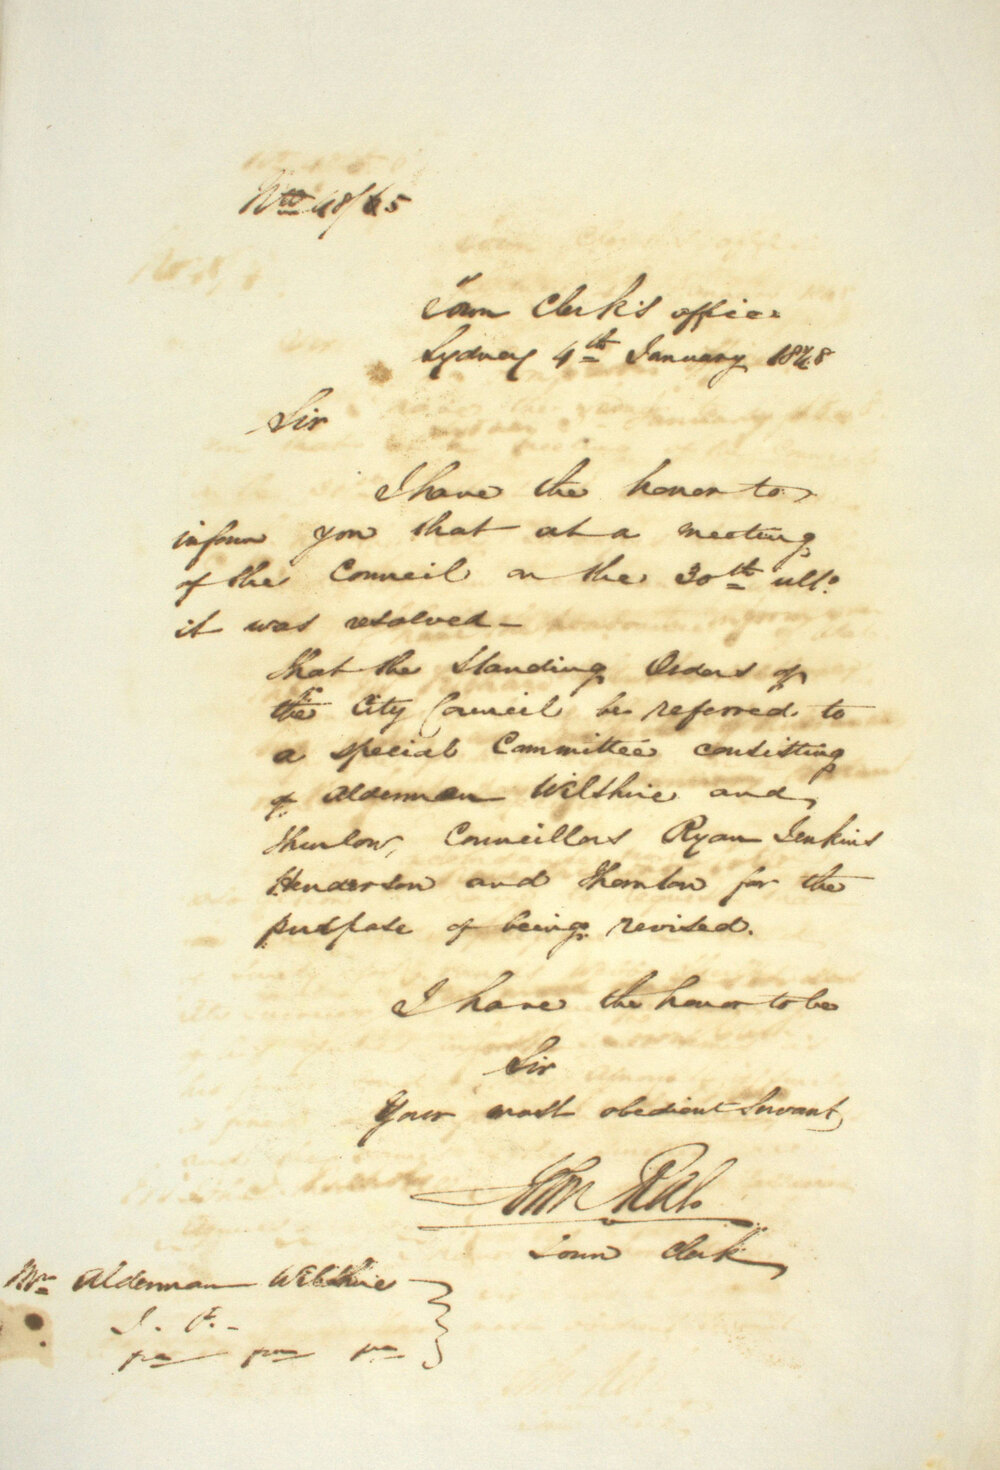 48/65
Town Clerk's office
Sydney 4th January 1848
Sir
I have the honor to
inform you that at a meeting
of the Council on the 30th ulto.
it was resolved -
that the Standing Orders of
the City Council be referred to
a special Committee consisting
of Alderman Wilshire and
Thurlow, Councillors Ryan Jenkins
Henderson and Thornton for the
purpose of being revised.
I have the honor to be
Sir
Your most obedient Servant
John
Town Clerk
Mr Alderman Wilshire